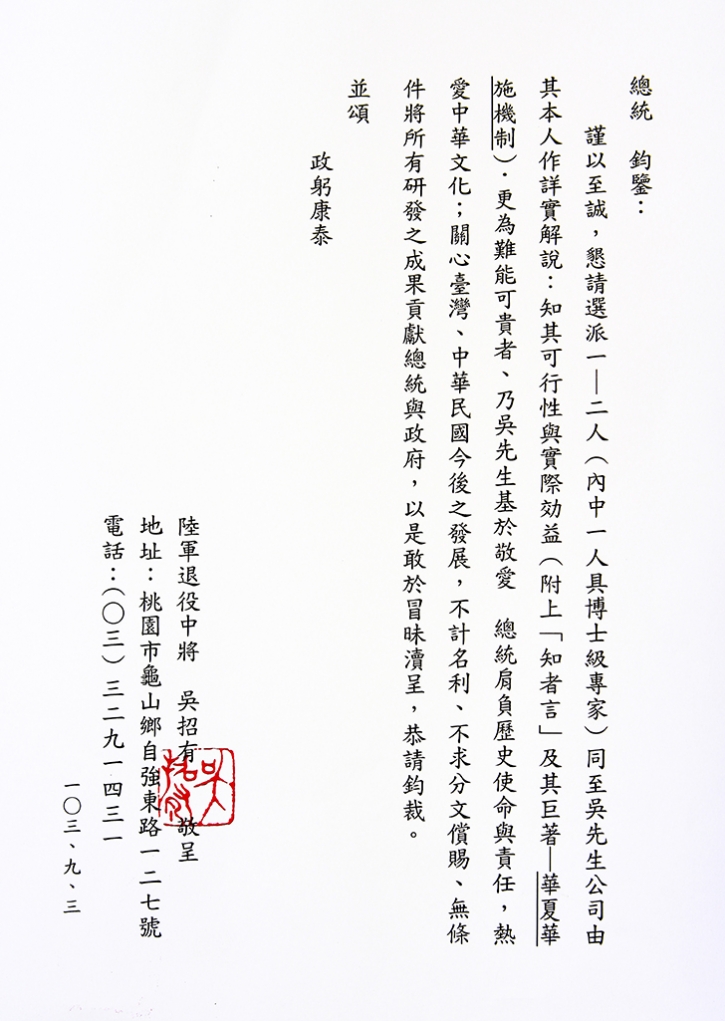 總統　鈞鑒：
謹以至誠，懇請選派一—二人（內中一人具博士級專家）同至吳先生公司由
其本人作詳實解說：知其可行性與實際効益（附上「知者言」及其巨著—華夏華
施機制）．更為難能可貴者、乃吳先生基於敬愛　總統肩負歷史使命與責任，熱
愛中華文化；關心臺灣、中華民國今後之發展，不計名利、不求分文償賜、無條
件將所有研發之成果貢獻總統與政府，以是敢於冒昧瀆呈，恭請鈞裁。
並頌
政躬康泰
陸軍退役中將　吳招有　敬呈
地址：桃園市龜山鄉自強東路一二七號
電話：（〇三）三二九一四三一
一〇三、九、三
吳招有